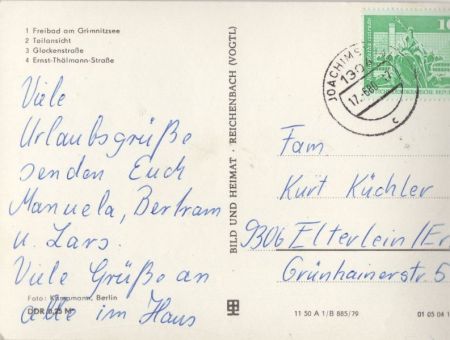 1 Freibad am Grimnitzsee
2 Teilansicht
3 Glockenstraße
4 Ernst-Thälmann-Straße
Viele
Urlaubsgrüße
senden Euch
Manuela, Bertram
u. Lars.
Viele Grüße an
alle im Haus
Foto: Kühnmann, Berlin
DDR 0,25 M
BILD UND HEIMAT · REICHENBACH (VOGTL)
JOACHIMS
17.-6.80.-7
c
10
Fam
Kurt Küchler
9306 Elterlein/Er
Grünhainerstr 5
11 50 A 1/B 885/79
01 05 04 1